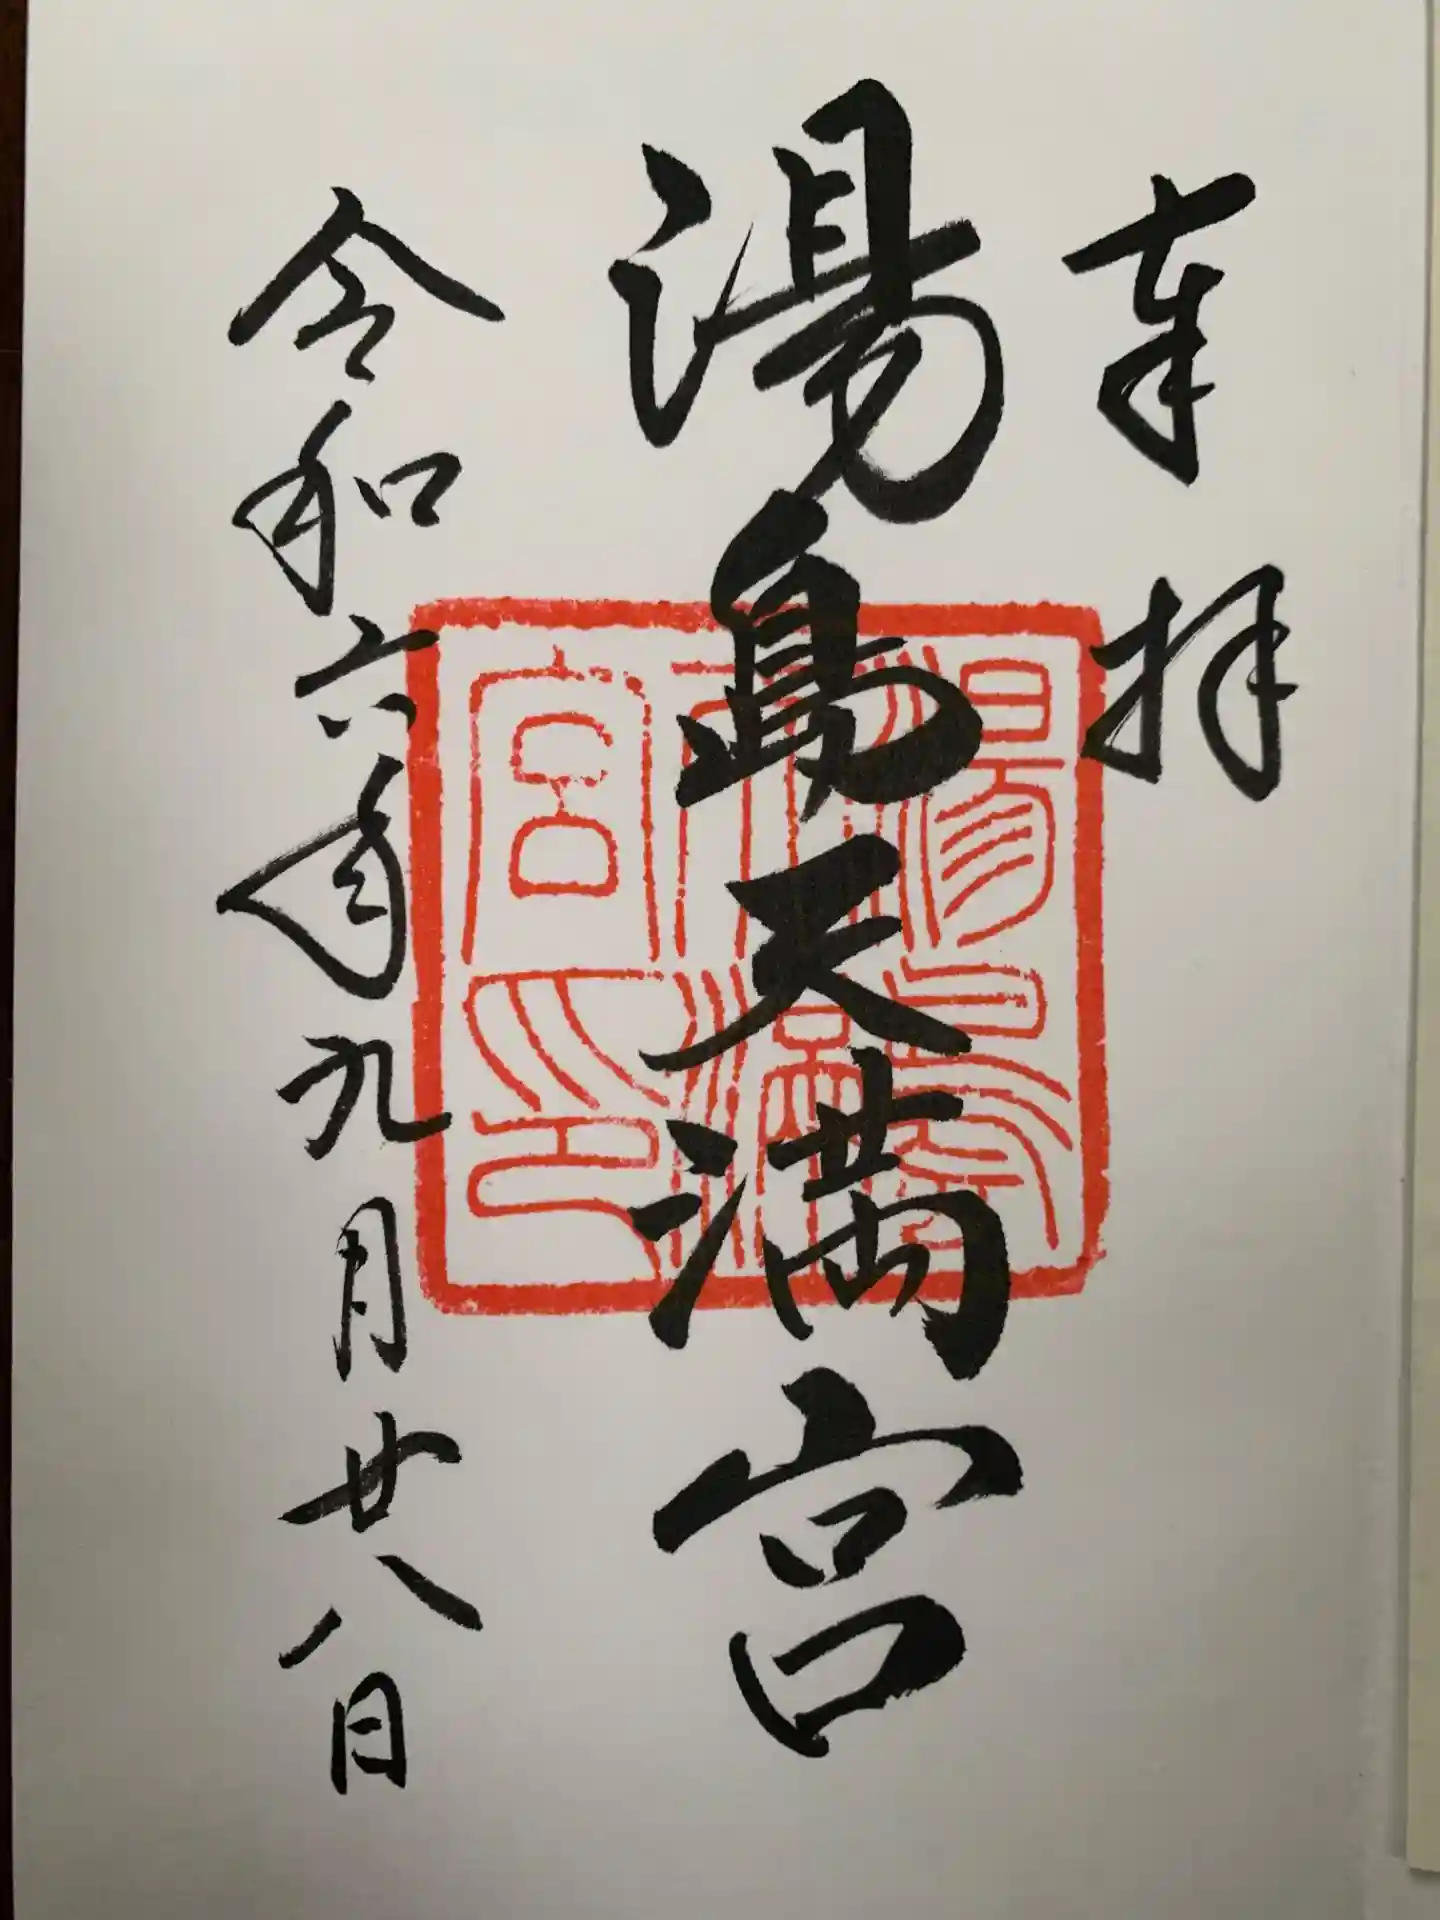 奉拝
湯島天満宮
令和六年九月廿八日
湯島
天満
宮印